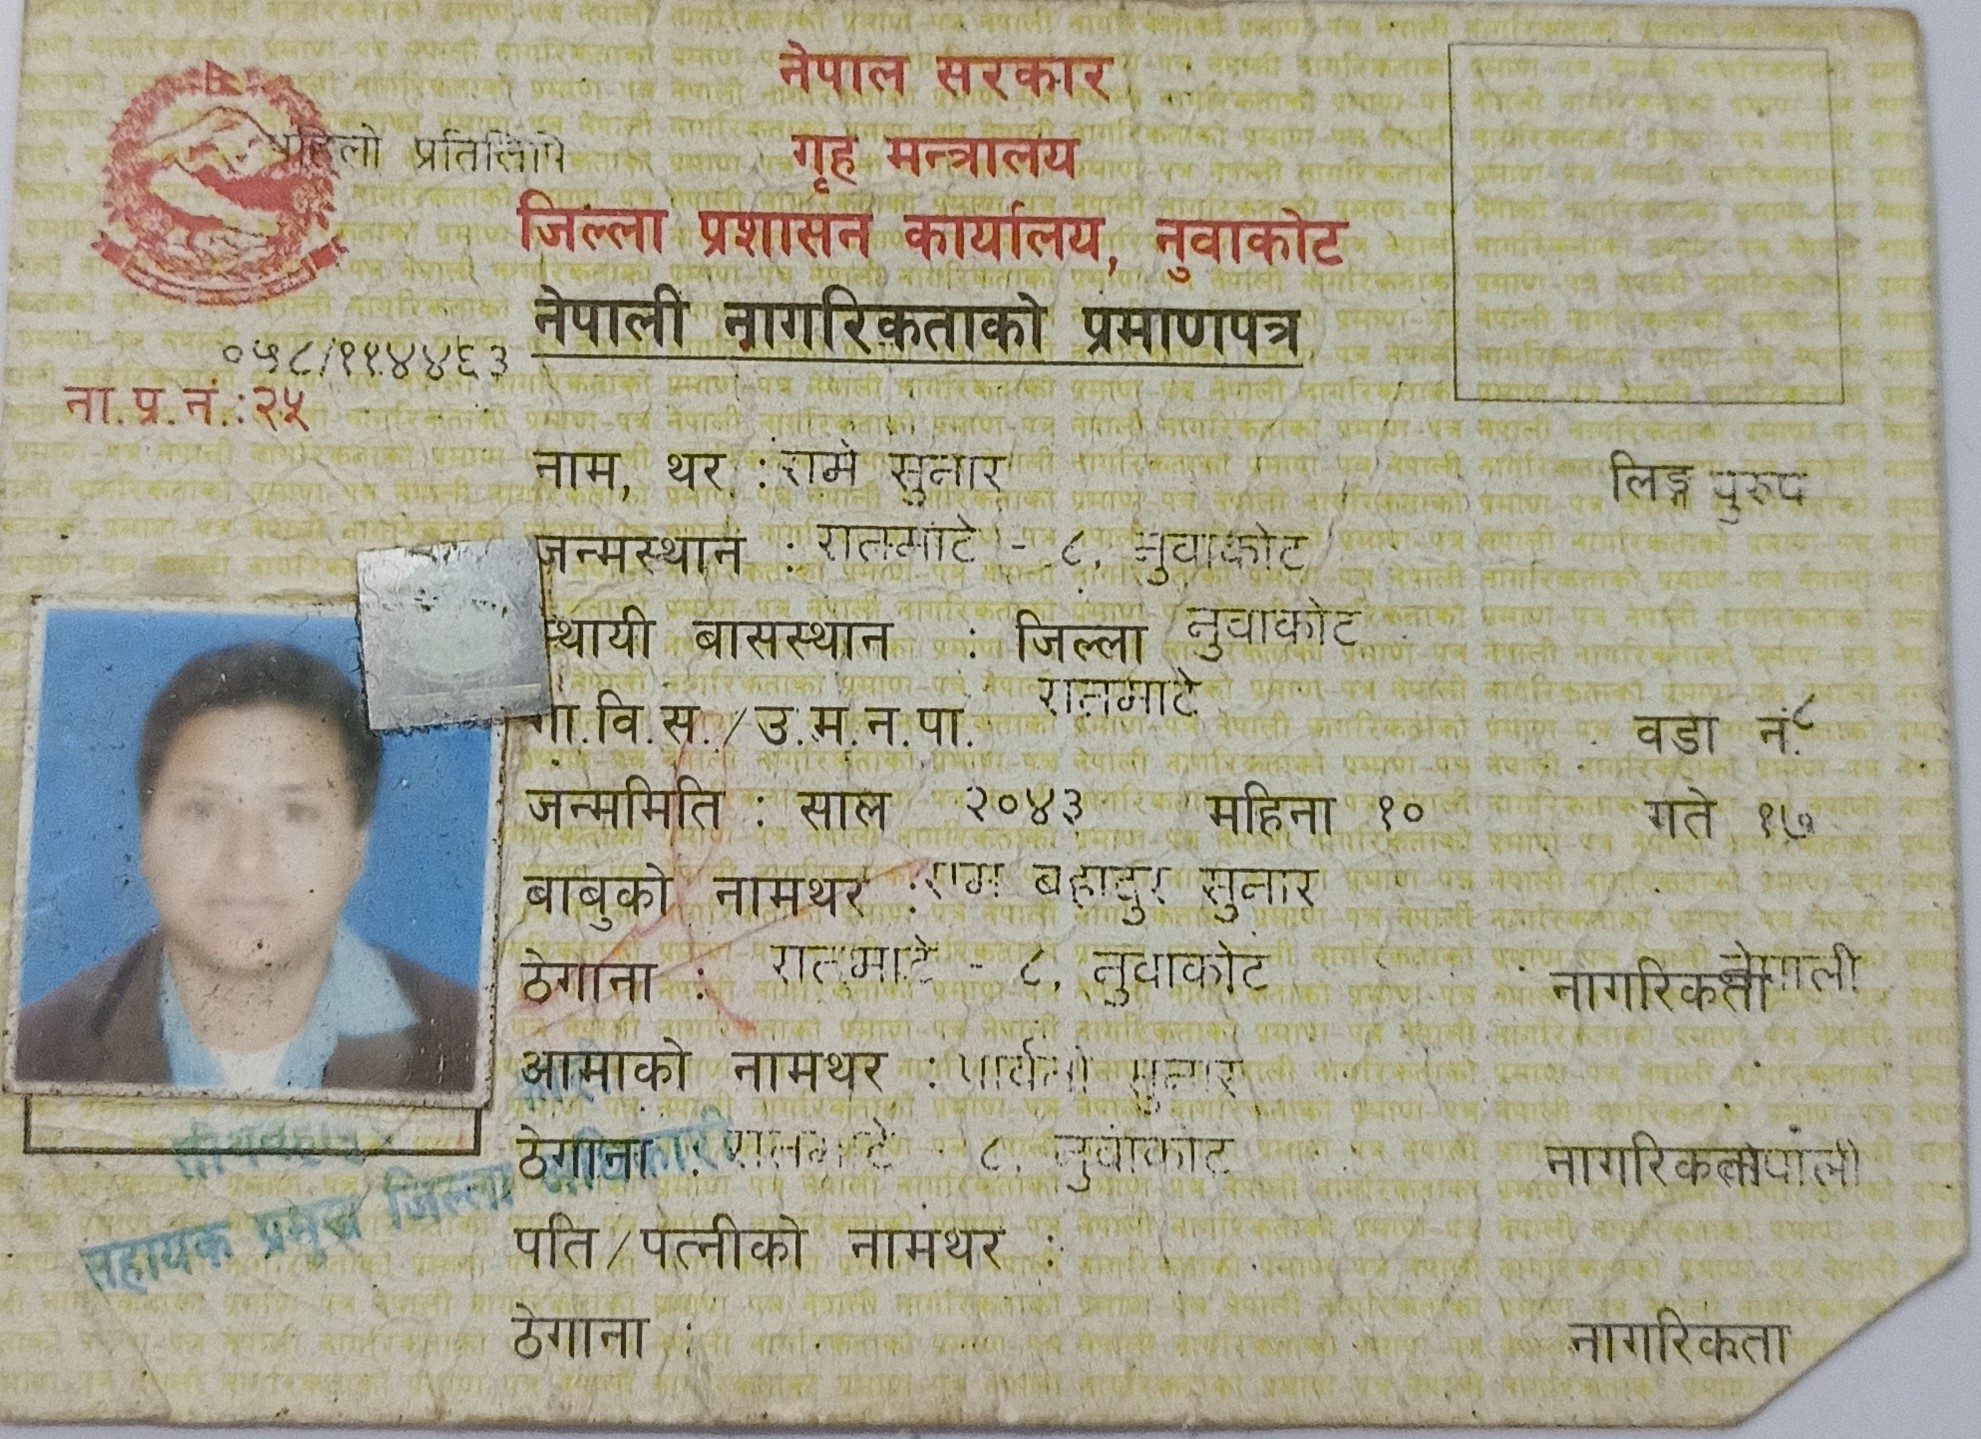 नेपाल सरकार
पहिलो प्रतिलिपि
गृह मन्त्रालय
जिल्ला प्रशासन कार्यालय, नुवाकोट
नेपाली नागरिकताको प्रमाणपत्र
०५८/११४४६३
ना.प्र.नं.:२५
नाम, थर : रामे सुनार लिङ्ग पुरुष
जन्मस्थान : रातमाटे - ८, नुवाकोट
स्थायी बासस्थान : जिल्ला नुवाकोट
गा.वि.स./उ.म.न.पा. रातमाटे वडा नं. ८
जन्ममिति : साल २०४३ महिना १० गते १७
बाबुको नामथर : राम बहादुर सुनार
ठेगाना : रातमाटे - ८, नुवाकोट नागरिकता नेपाली
आमाको नामथर : पार्वती सुनार
ठेगाना : रातमाटे - ८, नुवाकोट नागरिकता नेपाली
सहायक प्रमुख जिल्ला अधिकारी
पति/पत्नीको नामथर :
ठेगाना : नागरिकता